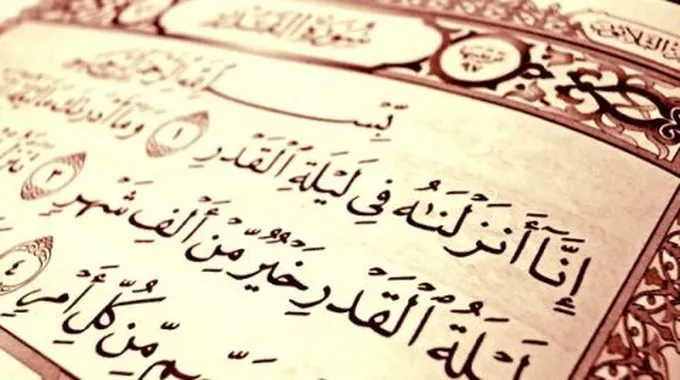 سورة القدر
بِسْمِ ٱللَّهِ ٱلرَّحْمَٰنِ ٱلرَّحِيمِ
إِنَّآ أَنزَلْنَٰهُ فِى لَيْلَةِ ٱلْقَدْرِ ١ وَمَآ أَدْرَىٰكَ مَا
لَيْلَةُ ٱلْقَدْرِ خَيْرٌ مِّنْ أَلْفِ شَهْرٍ ٣
مِّن كُلِّ أَمْرٍ ٤